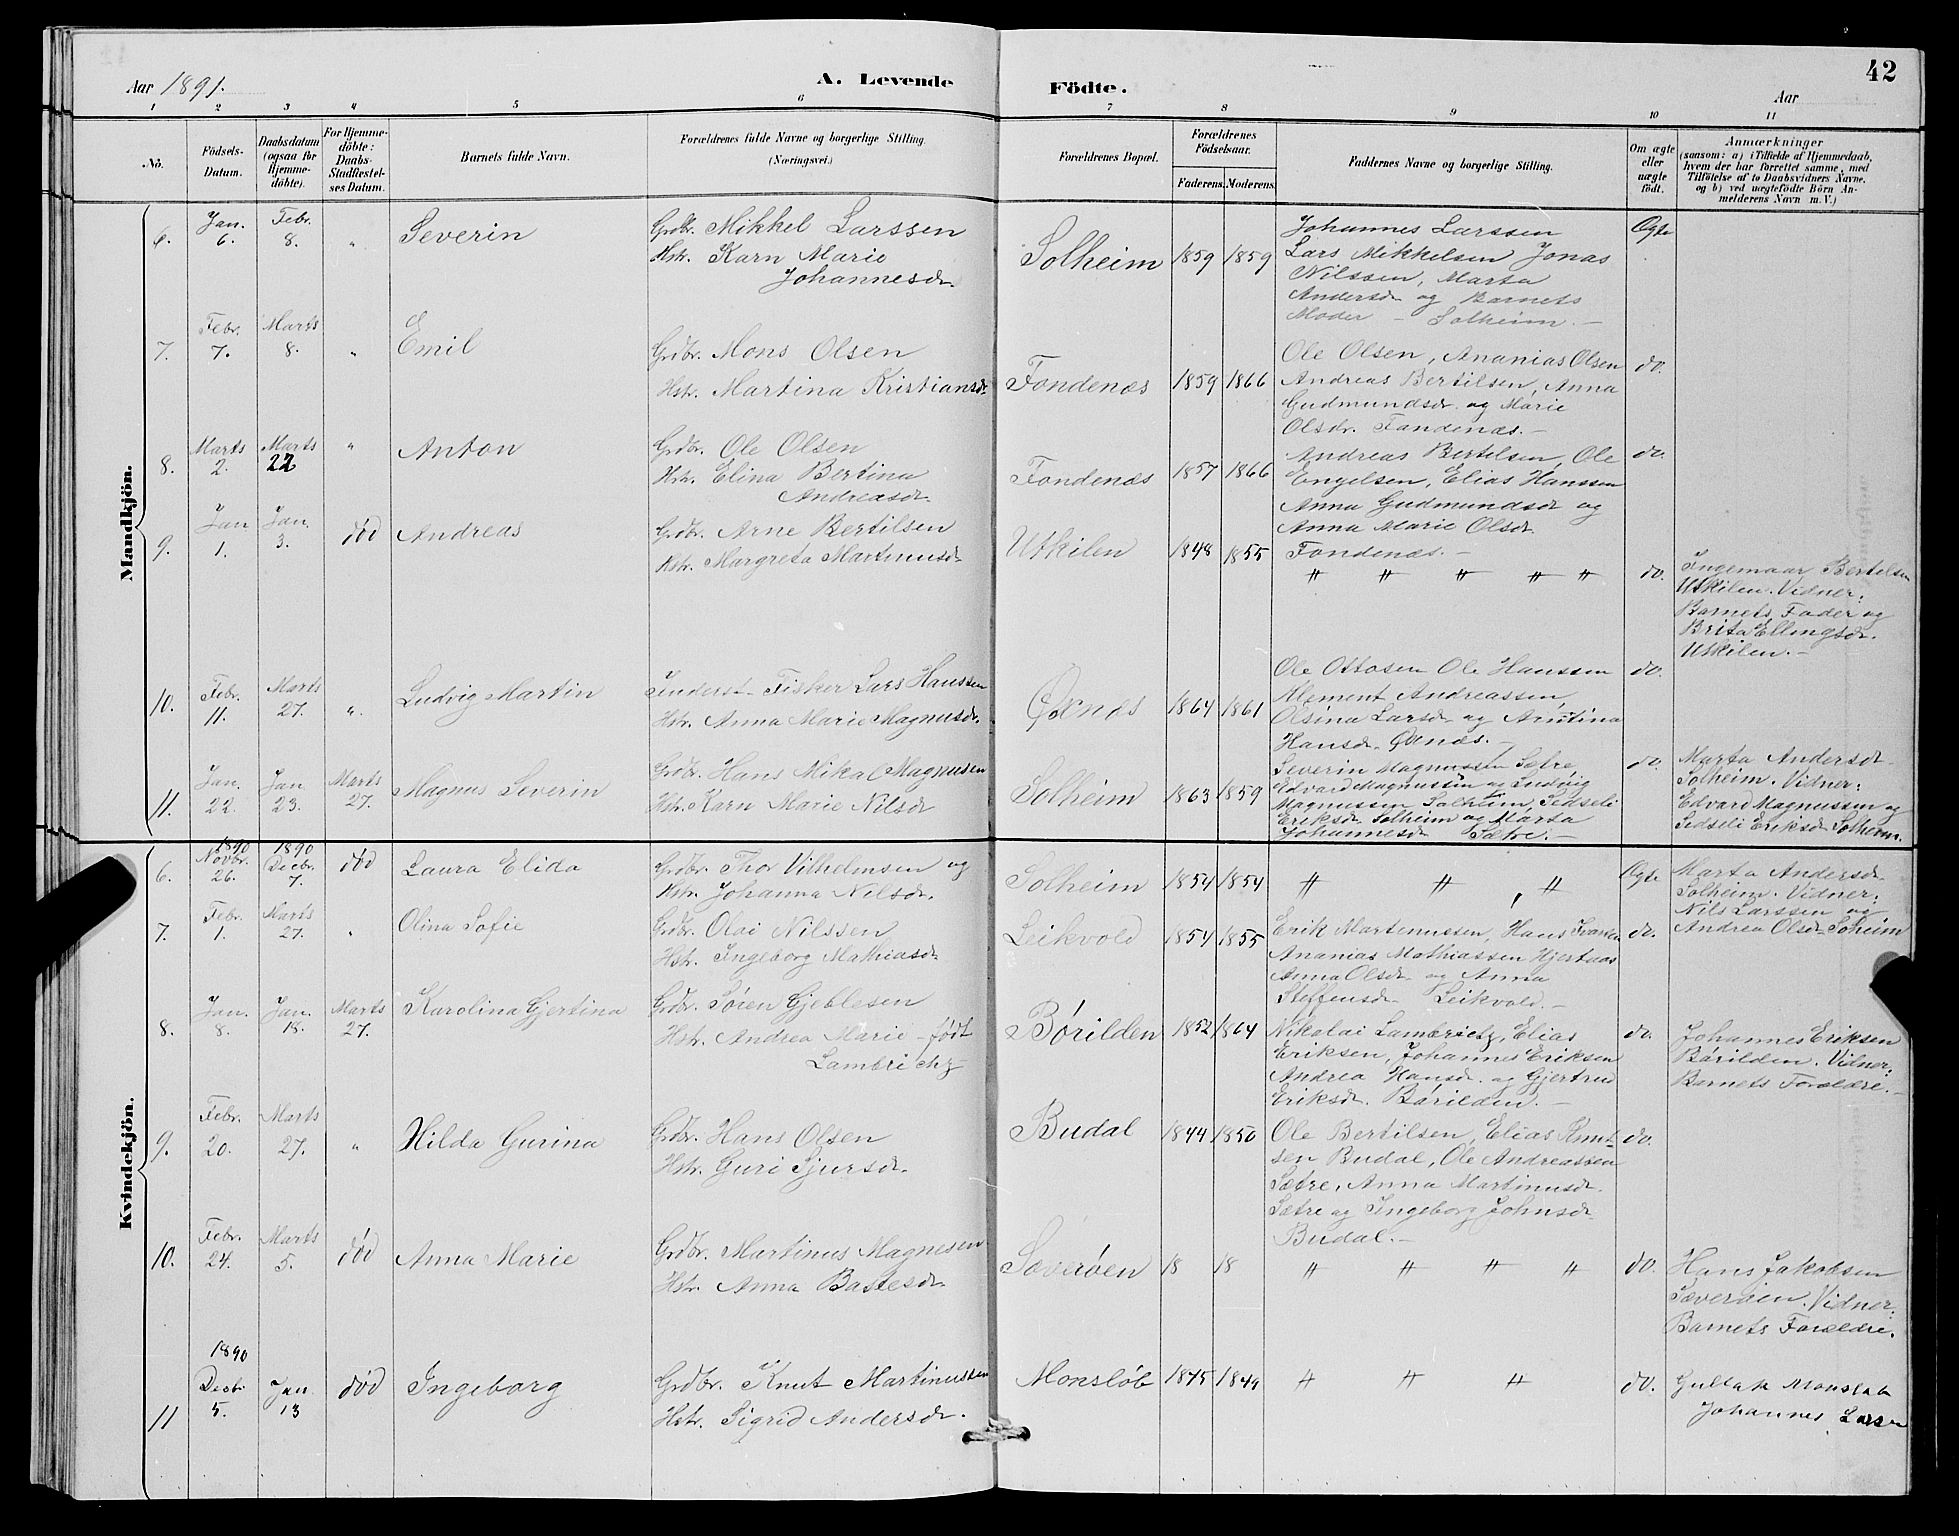 42
Aar 1891.
A. Levende Födte.
Aar
1 2 3 4 5 6 7 8 9 10 11
No.
Födsels-Datum.
Daabsdatum (ogsaa for Hjemmedöbte).
For Hjemmedöbte: Daabs-Stadfæstelses Datum.
Barnets fulde Navn.
Forældrenes fulde Navne og borgerlige Stilling. (Næringsvei.)
Forældrenes Bopæl.
Forældrenes Födselsaar.
Faderens. Moderens.
Faddernes Navne og borgerlige Stilling.
Om ægte eller uægte födt.
Anmærkninger
(saasom: a) i Tilfælde af Hjemmedaab, hvem der har forrettet samme, med Tilföielse af to Daabsvidners Navne, og b) ved uægtefödte Börn Anmelderens Navn m. V.)
Mandkjön.
6. Jan. 6. Febr. 8. " Severin
Grdbr. Mikkel Larssen
Hstr. Karn Marie
Johannesdr.
Solheim 1859 1859
Johannes Larssen
Lars Mikkelsen Jonas
Nilssen, Marta
Andersdr og Barnets
Moder - Solheim. -
Ægte
7. Febr. 7. Marts 8. " Emil
Grdbr. Mons Olsen
Hstr. Martina Kristiansdr
Fondenæs 1859 1866
Ole Olsen, Ananias Olsen
Andreas Bertilsen, Anna
Gudmundsdr. og Marie
Olsdr. Fondenæs. -
do.
8. Marts 2. Marts 22 " Anton
Grdbr. Ole Olsen
Hstr. Elina Bertina
Andreasdr.
Fondenæs 1857 1866
Andreas Bertelsen, Ole
Engelsen, Elias Hanssen
Anna Gudmundsdr og
Anna Marie Olsdr.
Fondenæs. -
do.
9. Jan 1. Jan. 3. død Andreas
Grdbr. Arne Bertilsen
Hstr. Margreta Martinusdr.
Utkilen 1848 1855
" " " " "
do.
Ingemaar Bertelsen
Utkilen. Vidner:
Barnets Fader og
Brita Ellingsdr.
Utkilen. -
10. Febr. 11. Marts 27. " Ludvig Martin
Inderst - Fisker Lars Hanssen
Hstr. Anna Marie Magnusdr.
Øxnæs 1864 1861
Ole Ottosen Ole Hanssen
Klement Andreassen,
Olsina Larsdr og Anna
Hansdr. Øxnæs. -
do.
11. Jan. 22. Jan. 23. Marts 27. Magnus Severin
Grdbr. Hans Mikal Magnusen
Hstr. Karn Marie Nilsdr
Solheim 1863 1859
Severin Magnussen Sætre
Edvard Magnussen og Ludvig
Magnussen Solheim, Sedseli
Eriksdr. Solheim og Marta
Johannesdr Sætre. -
do.
Marta Andersdr
Solheim. Vidner:
Edvard Magnussen og
Sedseli Eriksdr Solheim.
Kvindekjön.
6. 1890 Novbr. 26. 1890 Decbr. 7. død Laura Elida
Grdbr. Thor Vilhelmsen og
Hstr. Johanna Nilsdr.
Solheim 1854 1854
" " "
Ægte
Marta Andersdr.
Solheim. Vidner:
Nils Larssen og
Andrea Olsdr. Solheim
7. Febr. 1. Marts 27. " Olina Sofie
Grdbr. Olai Nilssen
Hstr. Ingeborg Mathiasdr.
Leikvold 1854 1855
Erik Martenussen, Hans Ivarsen
Ananias Mathiassen Hjertnæs
Anna Olsdr og Anna
Steffensdr Leikvold. -
do.
8. Jan. 8. Jan. 18. Marts 27. Karolina Gjertina
Grdbr. Søren Gjeblesen
Hstr. Andrea Marie - født
Lambrichtz
Børilden 1852 1864
Nikolai Lambrictz, Elias
Eriksen, Johannes Eriksen
Andrea Hansdr. og Gjertrud
Eriksdr. Børilden. -
do.
Johannes Eriksen
Børilden. Vidner:
Barnets Forældre. -
9. Febr. 20. Marts 27. " Hilda Gurina
Grdbr. Hans Olsen
Hstr. Guri Sjursdr.
Budal 1844 1850
Ole Bertilsen, Elias Knut-
sen Budal, Ole Andreassen
Sætre, Anna Martinusdr.
Sætre og Ingeborg Johnsdr
Budal. -
do.
10. Febr. 24. Marts 5. død Anna Marie
Grdbr. Martinus Magnesen
Hstr. Anna Bastesdr.
Sæverøen 18 18
" " " "
do.
Hans Jakobsen
Sæverøen. Vidner:
Barnets Forældre.
11 1890 Decbr. 5. Jan. 13 død Ingeborg
Grdbr. Knut Martinussen
Hstr. Sigrid Andersdr.
Monsløb 1845 1849
" " "
do.
Gullak Monsløb
Johannes Larsen